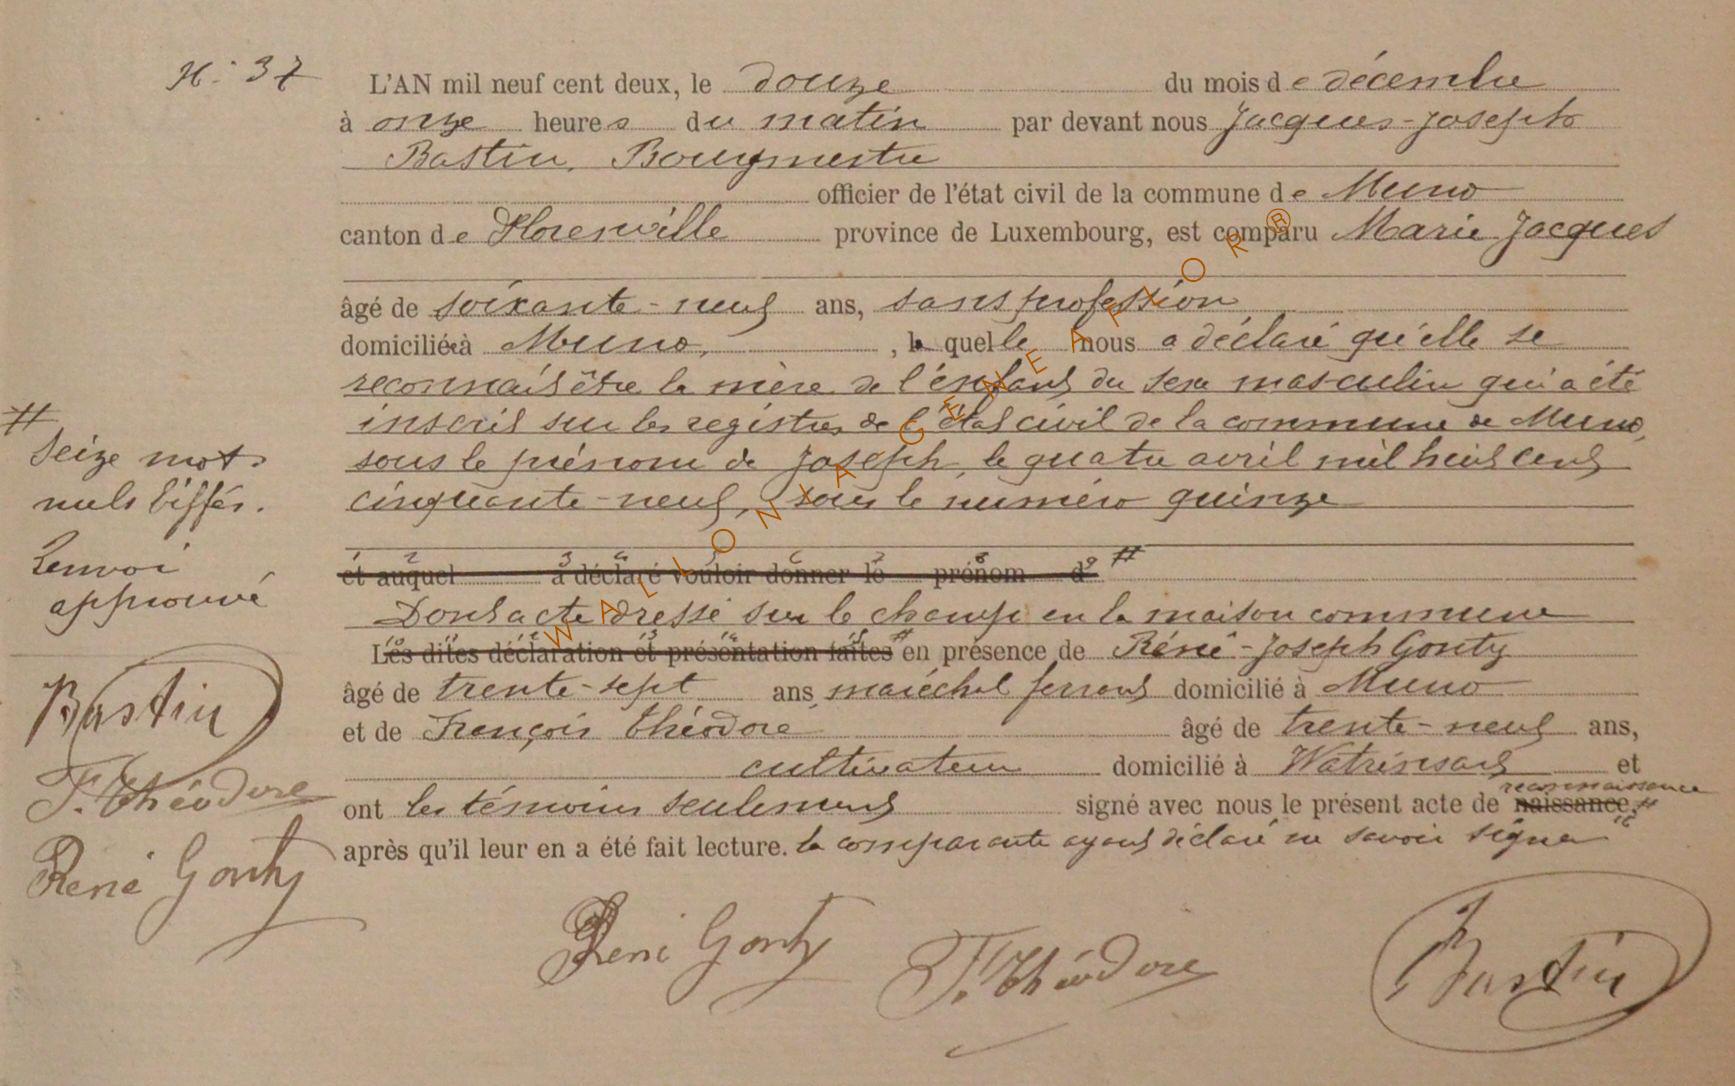 N° 37
L'AN mil neuf cent deux, le douze du mois de décembre
à onze heures du matin par devant nous Jacques-Joseph
Bastin, Bourgmestre
officier de l'état civil de la commune de Muno
canton de Florenville province de Luxembourg, est comparu Marie Jacques
âgé de soixante-neuf ans, sans profession
domiciliée à Muno, laquelle nous a déclaré qu'elle se
reconnait être la mère de l'enfant du sexe masculin qui a été
inscrit sur les registres de l'état civil de la commune de Muno,
sous le prénom de Joseph, le quatre avril mil huit cent
cinquante-neuf, sous le numéro quinze
et auquel a déclaré vouloir donner le prénom d #
Dont acte dressé sur le champ en la maison commune
Les dites déclaration et présentation faites # en présence de Réné-Joseph Gonty
âgé de trente-sept ans, maréchal ferrant domicilié à Muno
et de François Théodore âgé de trente-neuf ans,
cultivateur domicilié à Watrinsart et
ont les témoins seulement signé avec nous le présent acte de naissance # reconnaissance
après qu'il leur en a été fait lecture. la comparante ayant déclaré ne savoir signer
#
Seize mots
nuls biffés.
Renvoi
approuvé
Bastin
F. Théodore
René Gonty
René Gonty F. Théodore Bastin
WALLONIA GENEAPLOR ®